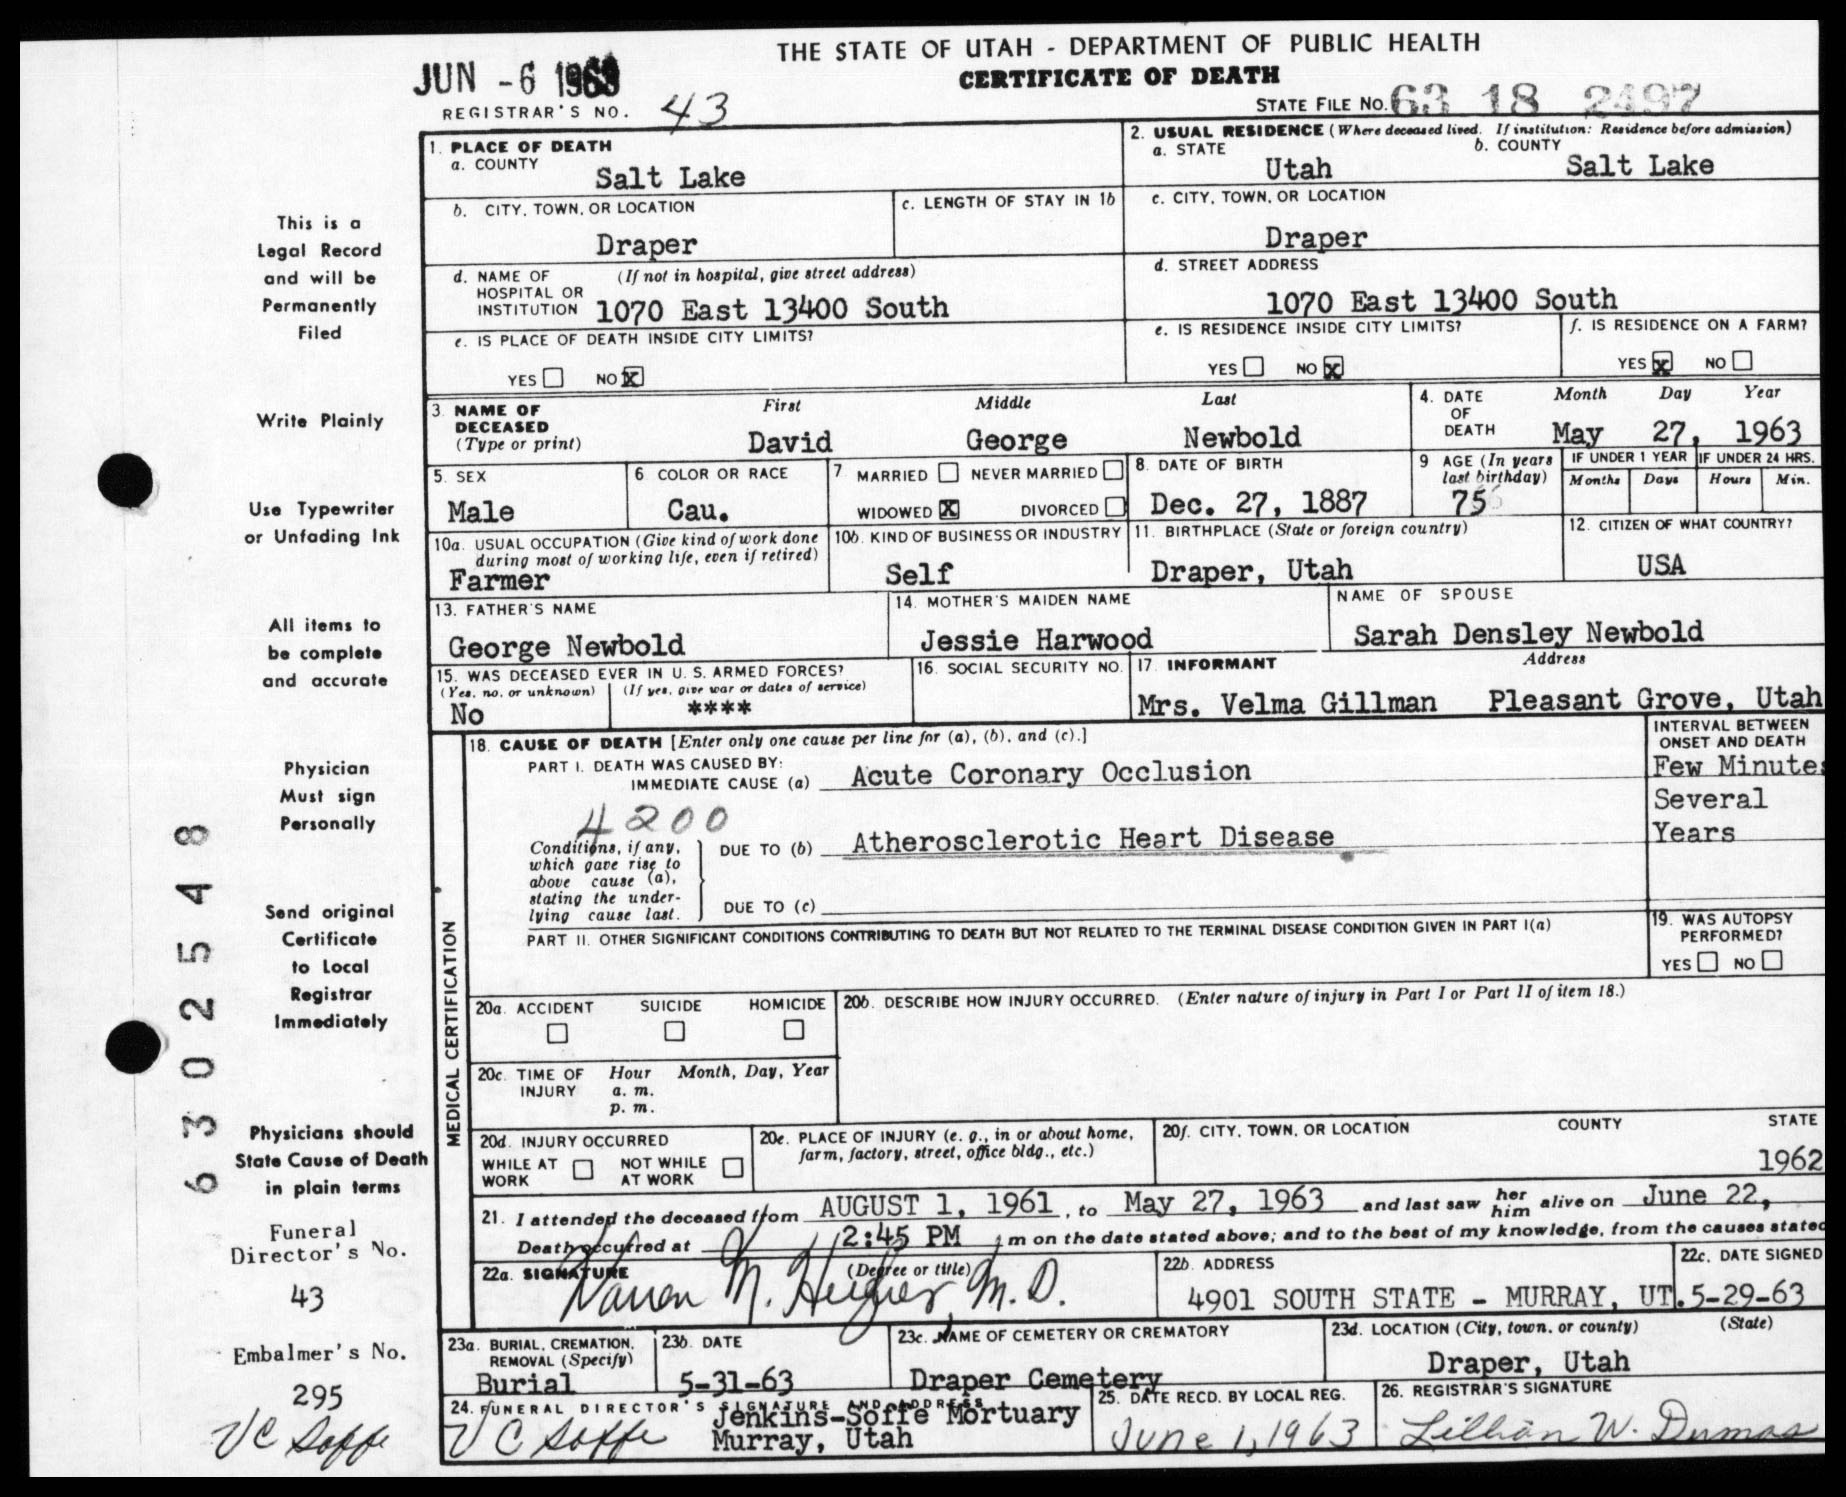 THE STATE OF UTAH - DEPARTMENT OF PUBLIC HEALTH
CERTIFICATE OF DEATH
JUN -6 1963
REGISTRAR'S NO. 43
STATE FILE NO. 63 18 2497
This is a
Legal Record
and will be
Permanently
Filed
Write Plainly
Use Typewriter
or Unfading Ink
All items to
be complete
and accurate
Physician
Must sign
Personally
Send original
Certificate
to Local
Registrar
Immediately
Physicians should
State Cause of Death
in plain terms
Funeral
Director's No.
43
Embalmer's No.
295
V C Soffe
6302548
1. PLACE OF DEATH
a. COUNTY
Salt Lake
2. USUAL RESIDENCE (Where deceased lived. If institution: Residence before admission)
a. STATE
Utah
b. COUNTY
Salt Lake
b. CITY, TOWN, OR LOCATION
Draper
c. LENGTH OF STAY IN 1b
c. CITY, TOWN, OR LOCATION
Draper
d. NAME OF HOSPITAL OR INSTITUTION
(If not in hospital, give street address)
1070 East 13400 South
d. STREET ADDRESS
1070 East 13400 South
e. IS PLACE OF DEATH INSIDE CITY LIMITS?
YES NO X
e. IS RESIDENCE INSIDE CITY LIMITS?
YES NO X
f. IS RESIDENCE ON A FARM?
YES X NO
3. NAME OF DECEASED
(Type or print)
First Middle Last
David George Newbold
4. DATE OF DEATH
Month Day Year
May 27, 1963
5. SEX
Male
6 COLOR OR RACE
Cau.
7 MARRIED NEVER MARRIED
WIDOWED X DIVORCED
8. DATE OF BIRTH
Dec. 27, 1887
9 AGE (In years last birthday)
75
IF UNDER 1 YEAR
Months Days
IF UNDER 24 HRS.
Hours Min.
10a. USUAL OCCUPATION (Give kind of work done during most of working life, even if retired)
Farmer
10b. KIND OF BUSINESS OR INDUSTRY
Self
11. BIRTHPLACE (State or foreign country)
Draper, Utah
12. CITIZEN OF WHAT COUNTRY?
USA
13. FATHER'S NAME
George Newbold
14. MOTHER'S MAIDEN NAME
Jessie Harwood
NAME OF SPOUSE
Sarah Densley Newbold
15. WAS DECEASED EVER IN U. S. ARMED FORCES?
(Yes, no, or unknown) (If yes, give war or dates of service)
No ****
16. SOCIAL SECURITY NO.
17. INFORMANT Address
Mrs. Velma Gillman Pleasant Grove, Utah
MEDICAL CERTIFICATION
18. CAUSE OF DEATH [Enter only one cause per line for (a), (b), and (c).]
PART I. DEATH WAS CAUSED BY:
IMMEDIATE CAUSE (a) Acute Coronary Occlusion
INTERVAL BETWEEN
ONSET AND DEATH
Few Minutes
4200
Several
Years
Conditions, if any,
which gave rise to
above cause (a),
stating the under-
lying cause last.
DUE TO (b) Atherosclerotic Heart Disease
DUE TO (c)
PART II. OTHER SIGNIFICANT CONDITIONS CONTRIBUTING TO DEATH BUT NOT RELATED TO THE TERMINAL DISEASE CONDITION GIVEN IN PART I(a)
19. WAS AUTOPSY PERFORMED?
YES NO
20a. ACCIDENT SUICIDE HOMICIDE
20b. DESCRIBE HOW INJURY OCCURRED. (Enter nature of injury in Part I or Part II of item 18.)
20c. TIME OF INJURY
Hour Month, Day, Year
a. m.
p. m.
20d. INJURY OCCURRED
WHILE AT WORK NOT WHILE AT WORK
20e. PLACE OF INJURY (e. g., in or about home, farm, factory, street, office bldg., etc.)
20f. CITY, TOWN, OR LOCATION COUNTY STATE
1962
21. I attended the deceased from AUGUST 1, 1961, to May 27, 1963 and last saw her him alive on June 22,
Death occurred at 2:45 PM m on the date stated above; and to the best of my knowledge, from the causes stated
22a. SIGNATURE (Degree or title)
Warren M. Hughes M.D.
22b. ADDRESS
4901 SOUTH STATE - MURRAY, UT.
22c. DATE SIGNED
5-29-63
23a. BURIAL, CREMATION, REMOVAL (Specify)
Burial
23b. DATE
5-31-63
23c. NAME OF CEMETERY OR CREMATORY
Draper Cemetery
23d. LOCATION (City, town, or county) (State)
Draper, Utah
24. FUNERAL DIRECTOR'S SIGNATURE AND ADDRESS
V C Soffe
Jenkins-Soffe Mortuary
Murray, Utah
25. DATE RECD. BY LOCAL REG.
June 1, 1963
26. REGISTRAR'S SIGNATURE
Lillian W. Dumas